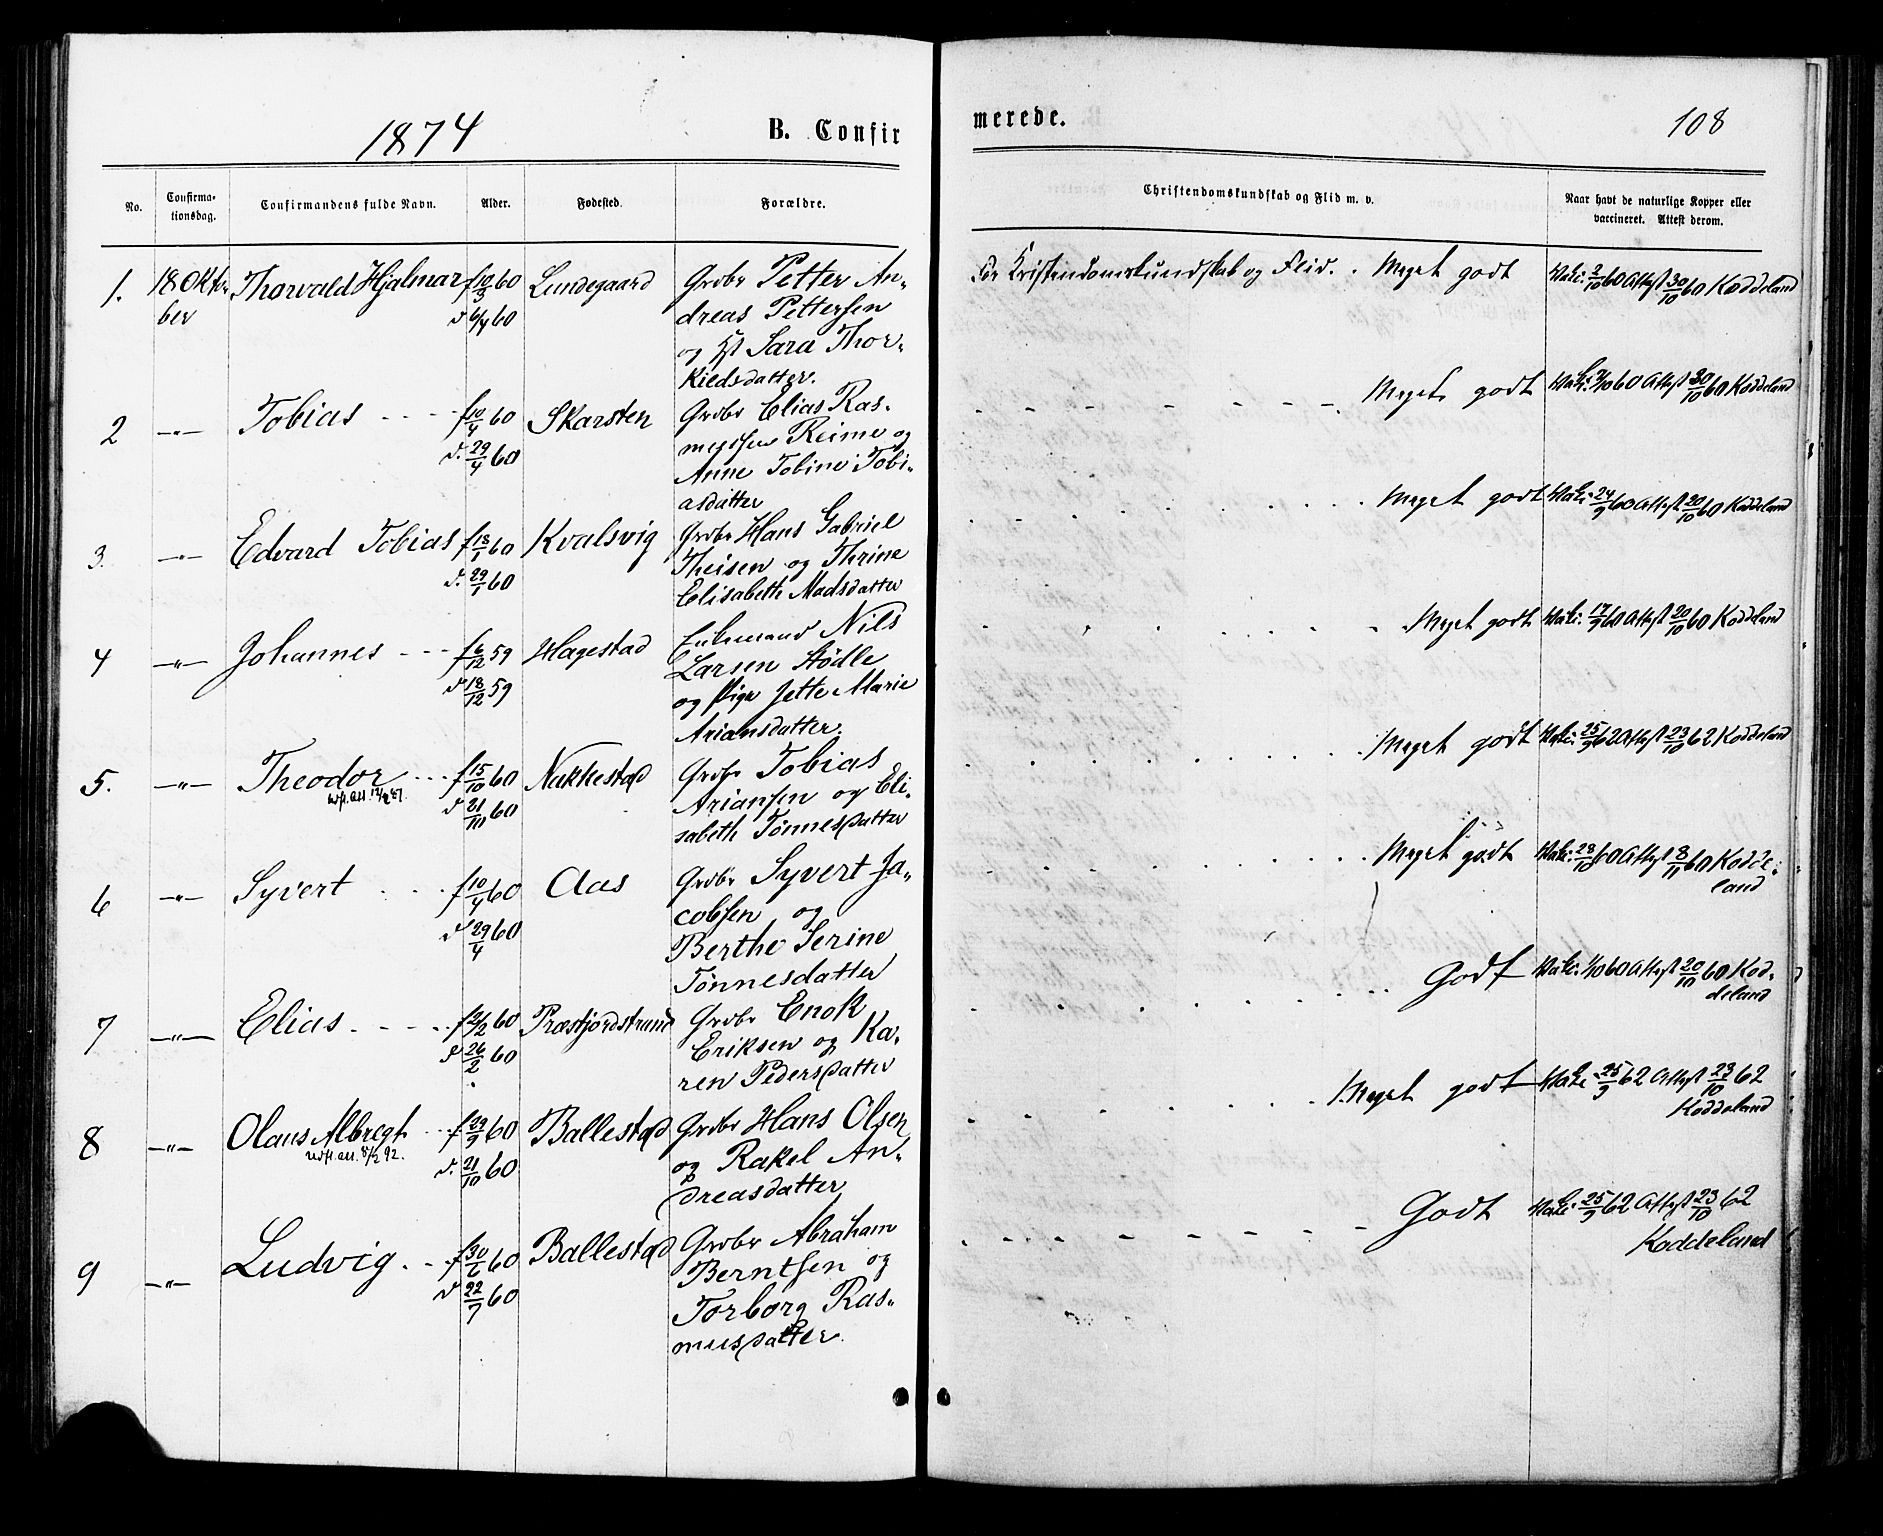 1874
B. Confir
merede.
108
No.
Confirma-
tionsdag.
Confirmandens fulde Navn.
Alder.
Fødested.
Forældre.
Christendomskundskab og Flid m. v.
Naar havt de naturlige Kopper eller
vaccineret. Attest derom.
1. 18 Okto- Thorvald Hjalmar f 10/3 60 Lundegaard Grdbr Petter An-
ber d 6/4 60 dreas Pettersen
og Hst Sara Thor-
kieldsdatter.
For Kristendomskundskab og Flid. Meget godt Vakc: 2/10 60 Attest 30/10 60 Koddeland
2 -"- Tobias f 10/4 60 Skarsten Grdbr Elias Ras-
d. 29/4 60 mussen Reime og
Anne Tobine Tobi-
asdatter
Meget godt Vakc: 2/10 60 Attest 30/10 60 Koddeland
3. -"- Edvard Tobias f 18/1 60 Kvalsvig Grdbr Hans Gabriel
d. 29/1 60 Theisen og Thrine
Elisabeth Madsdatter
Meget godt Vakc: 24/9 60 Attest 20/10 60 Koddeland
4 -"- Johannes f 6/12 59 Hagestad Enkemand Nils
d 18/12 59 Larsen Stødle
og Pige Jette Marie
Ariansdatter.
Meget godt Vakc: 17/9 60 Attest 20/10 60 Koddeland
5. -"- Theodor f 15/10 60 Nakkestad Grdbr Tobias
d 21/10 60 Ariansen og Eli-
sabeth Tønnesdatter
Meget godt Vakc: 25/9 62 Attest 23/10 62 Koddeland
6 -"- Syvert f 10/4 60 Aas Grdbr Syvert Ja-
d 29/4 60 cobsen og
Berthe Serine
Tønnesdatter
Meget godt Vakc: 28/10 60 Attest 8/11 60 Kodde-
land
7 -"- Elias f 2/2 60 Præstjordstrand Grdbr Enok
d 26/2 60 Eriksen og Ka-
ren Pedersdatter
Godt Vakc: 1/10 60 Attest 20/10 60 Kod-
deland
8 -"- Olaus Albregt f 29/9 60 Ballestad Grdbr Hans Olsen
udst. att. 5/2 92.
d. 21/10 60 og Rakel An-
dreasdatter
Meget godt Vakc 25/9 62 Attest 23/10 62
Koddeland
9 -"- Ludvig f 30/6 60 Ballestad Grdbr Abraham
d 22/7 60 Berntsen og
Torborg Ras-
musdatter.
Godt Vakc: 25/9 62 Attest 23/10 62
Koddeland